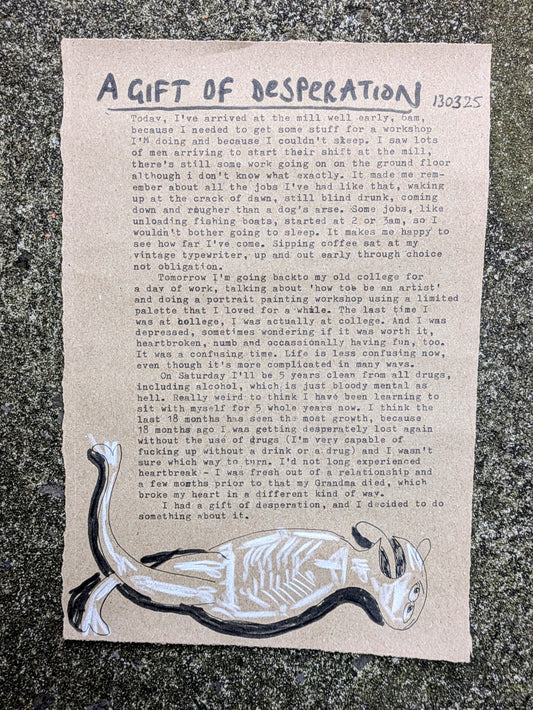 A GIFT OF DESPERATION 130325
Today, I've arrived at the mill well early, 6am,
because I needed to get some stuff for a workshop
I'm doing and because I couldn't skeep. I saw lots
of men arriving to start their shift at the mill,
there's still some work going on on the ground floor
although i don't know what exactly. It made me rem-
ember about all the jobs I've had like that, waking
up at the crack of dawn, still blind drunk, coming
down and rougher than a dog's arse. Some jobs, like
unloading fishing boats, started at 2 or 3am, so I
wouldn't bother going to sleep. It makes me happy to
see how far I've come. Sipping coffee sat at my
vintage typewriter, up and out early through choice
not obligation.
Tomorrow I'm going backto my old college for
a day of work, talking about 'how tob be an artist'
and doing a portrait painting workshop using a limited
palette that I loved for a while. The last time I
was at college, I was actually at college. And I was
depressed, sometimes wondering if it was worth it,
heartbroken, numb and occassionally having fun, too.
It was a confusing time. Life is less confusing now,
even though it's more complicated in many ways.
On Saturday I'll be 5 years clean from all drugs,
including alcohol, which is just bloody mental as
hell. Really weird to think I have been learning to
sit with myself for 5 whole years now. I think the
last 18 months has seen the most growth, because
18 months ago I was getting desperately lost again
without the use of drugs (I'm very capable of
fucking up without a drink or a drug) and I wasn't
sure which way to turn. I'd not long experienced
heartbreak - I was fresh out of a relationship and
a few months prior to that my Grandma died, which
broke my heart in a different kind of way.
I had a gift of desperation, and I decided to do
something about it.